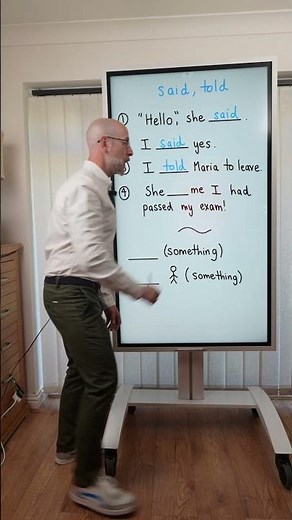 said, told
① "Hello," she said.
I said yes.
I told Maria to leave.
④ She ___ me I had
passed my exam!
____ (something)
(something)